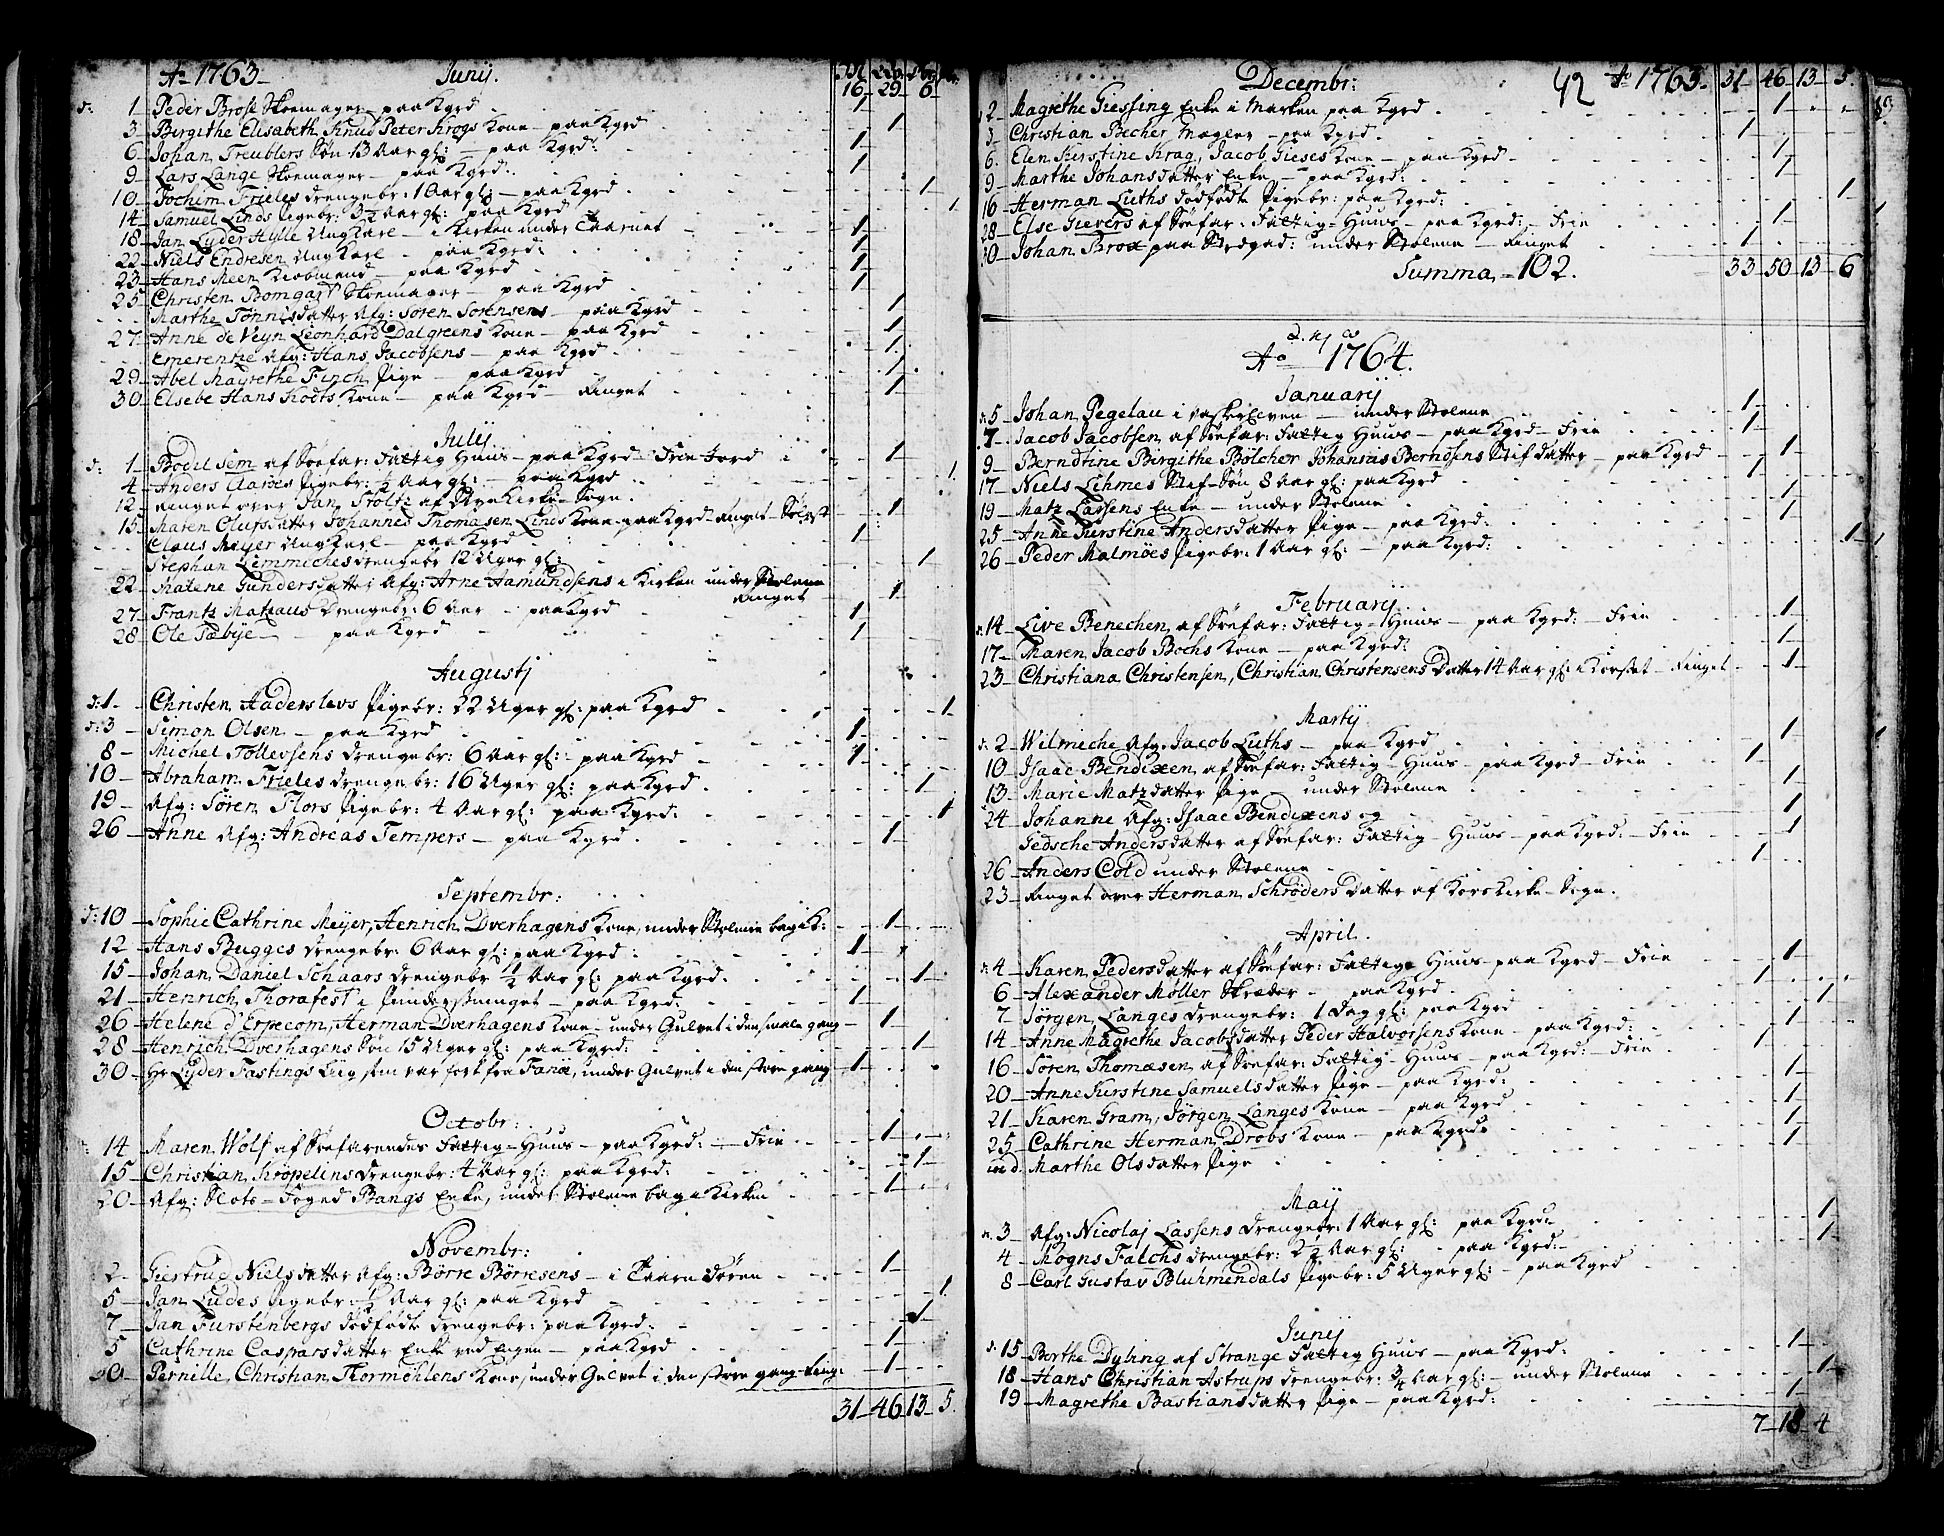 Ao 1763 Junij.
16 29 6
d: 1 Peder Brose Skoemager paa Kgrd
3 Birgithe Elisabeth Knud Peter Krogs Kone paa Kgrd
6 Johan Treublers Søn 13 Aar gl: paa Kgrd:
9 Lars Lange Skoemager paa Kgrd:
10 Jochim Frieles drengebr: 1 Aar gl: paa Kgrd
14 Samuel Linds Pigebr: 3½ Aar gl: paa Kgrd
18 Jan Lyder Hylle Ung Karl i Kirken under Taarnet
22 Niels Endresen Ung Karl paa Kgrd:
23 Hans Meen Kiobmand paa Kgrd
25 Christen Bomgart Skoemager paa Kgrd
Marthe Tønnisdatter Afg: Søren Sørensens paa Kgrd
27 Anne de Veyn Leonhard Dalgreens Kone paa Kgrd
Emerentze Afg: Hans Jacobsens paa Kgrd
29 Abel Magrethe Finch Pige paa Kgrd
30 Elsebe Hans Kodts Kone paa Kgrd Ringet
July
d: 1 Bodil Sem af Søefar: Fattig Huus paa Kgrd Frie Jord
4 Anders Aaroes Pigebr: ½ Aar gl: paa Kgrd
12 Ringet over Jan Holtz af Nye Kirke Sogn.
15 Maren Olufsdatter Johannes Thomæsen Linds Kone paa Kgrd Ringet
Claus Meyer Ung Karl paa Kgrd
Stephan Lemmiches drengebr 12 Uger gl:
22 Malene Gundersdatter Afg: Arne Aamundsens i Kirken under Stolene
Ringet
27 Frantz Matzaus Drengebr: 6 Aar paa Kgrd
28 Ole Tabye paa Kgrd
Augustj
d: 1 Christen Haderslevs Pigebr: 22 Uger gl: paa Kgrd
d: 3 Simon Olsen paa Kgrd
8 Michel Tollevsens drengebr: 6 Aar gl: paa Kgrd
10 Abraham Frieles drengebr: 16 Uger gl: paa Kgrd
19 Afg: Søren Flors Pigebr: 4 Aar gl: paa Kgrd:
26 Anne Afg: Andreas Tempers paa Kgrd
Septembr:
d: 10 Sophie Cathrine Meyer, Henrich Dverhagens Kone, under Stolene bag i K:
12 Hans Bugges drengebr: 6 Aar gl: paa Kgrd
15 Johan Daniel Schaars drengebr ½ Aar gl: paa Kgrd.
21 Henrich Thorafest i paa Kgrd:
26 Helene d'Erpecom, Herman Dverhagens Kone under Gulvet i den smale gang
28 Henrich Dverhagens Søn 15 Uger gl: paa Kgrd:
30 Hr Lyder Fastings Liig som var ført fra Fanøe, under Gulvet i den store gang
Octobr:
14 Maren Wolf af Søefarendes Fattig Huus paa Kgrd: Frie
15 Christian Krøpelins drengebr: 4 Aar gl: paa Kgrd:
20 Afg: Slots Foged Bangs Enke, under Stolene bag i Kirken
Novembr:
2 Giertrud Nielsdatter Afg: Børre Børresens i Taarn døren
5 Jan Ludes Pigebr: ½ Aar gl: paa Kgrd
7 Jan Furstenbergs dødfødte drengebr: paa Kgrd:
5 Cathrine Caspersdatter Enke ved Engen paa Kgrd
30 Pernille, Christian Thormohlens Kone, under Gulvet i den store gang Ring:
31 46 13 5.
Decembr: 42 Ao 1763. 31 46 13 5.
2 Magrethe Giessing Enke i Marken paa Kgrd
3 Christian Becher Magler paa Kgrd
6 Elen Kirstine Krag, Jacob Gieses Kone paa Kgrd
9 Marthe Johansdatter Enke paa Kgrd:
16 Herman Luths dødfødte Pigebr: paa Kgrd:
28 Else Sievers af Søefar: Fattig Huus paa Kgrd: Frie
30 Johan Brox paa Strdgad: under Stolene Ringet
Summa 102. 33 50 13 6
Ao 1764.
Januarij
d: 5 Johan Pegelau i under Stolene
7 Jacob Jacobsen af Søefar: Fattig Huus paa Kgrd Frie
9 Berndtine Birgithe Bølcher Johannes Berndsens Stifdatter paa Kgrd
17 Niels Lihmes Stef Søn 8 Aar gl: paa Kgrd
19 Matz Larsens Enke under Stolene
25 Anne Kirstine Andersdatter Pige paa Kgrd:
26 Peder Malmöes Pigebr: 1 Aar gl: paa Kgrd:
Februarij
d: 14 Live Benechen af Søefar: Fattig Huus paa Kgrd: Frie
17 Maren Jacob Bochs Kone paa Kgrd:
23 Christiana Christensen, Christian Christensens Datter 14 Aar gl: i Korset Ringet
Martij
d: 2 Wilmiche Afg: Jacob Luths paa Kgrd
10 Isaac Bendixen af Søefar: Fattig Huus paa Kgrd Frie
13 Marie Matzdatter Pige under Stolene
24 Johanne Afg: Isaac Bendixens og
Gedsche Andersdatter af Søefar: Fattig Huus paa Kgrd: Frie
26 Anders Cold under Stolene
23 Ringet over Herman Schrøders Datter af Kors Kirke Sogn.
April.
d: 4 Karen Pedersdatter af Søefar: Fattig Huus paa Kgrd Frie
6 Alexander Møller Skreder paa Kgrd
7 Jørgen Langes drengebr: 1 Dag gl: paa Kgrd
14 Anne Magrethe Jacobsdatter Peder Halvorsens Kone paa Kgrd:
16 Søren Thomæsen af Søefar: Fattig Huus paa Kgrd: Frie
20 Anne Kirstine Samuelsdatter Pige paa Kgrd:
21 Karen Gram, Jørgen Langes Kone paa Kgrd
25 Cathrine Herman Drobs Kone paa Kgrd:
Marthe Olsdatter Pige
May
d: 3 Afg: Nicolaj Lassens drengebr: 1 Aar gl: paa Kgrd
4 Mogns Falchs drengebr: 2½ Aar gl: paa Kgrd:
8 Carl Gustav Bluhmendals Pigebr: 5 Uger gl: paa Kgrd
Junij
d: 15 Berthe Dyling af Strange Fattig Huus paa Kgrd:
18 Hans Christian Astrups drengebr: ¾ Aar gl: under Stolene
19 Magrethe Bastiansdatter Pige paa Kgrd:
7 18 4